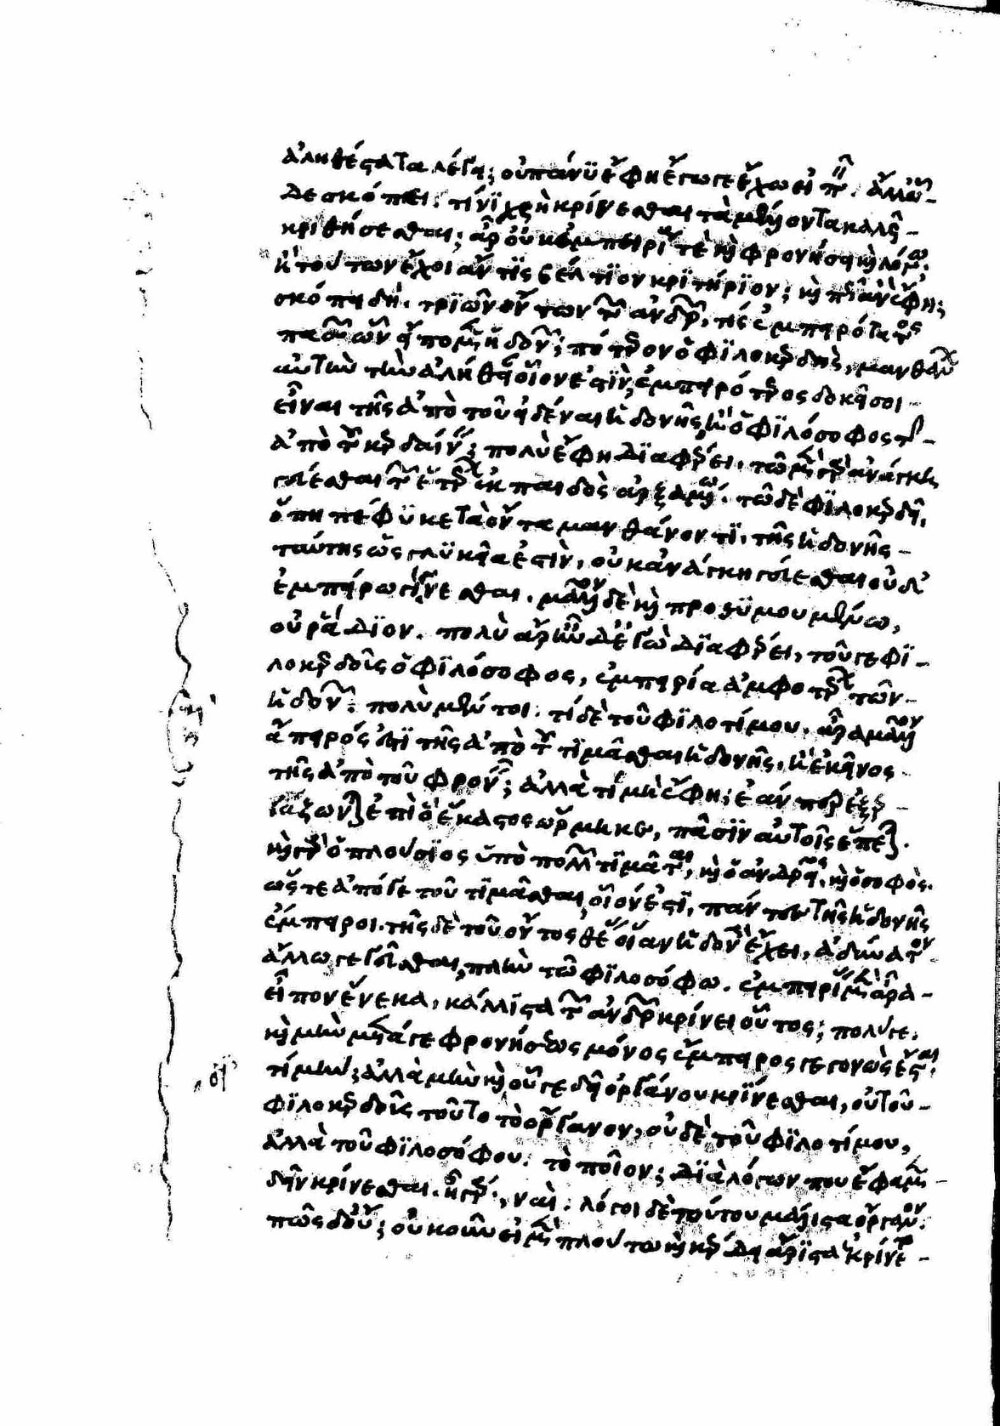 ἀληθέστατα λέγει; οὐ πάνυ ἔφη ἔγωγε ἔχω εἰπεῖν. ἀλλ' ὧ-
δε σκόπει. τίνι χρὴ κρίνεσθαι τὰ μέλλοντα καλῶς
κριθήσεσθαι; ἆρ' οὐκ ἐμπειρίᾳ τὲ καὶ φρονήσει καὶ λόγῳ;
ἢ τούτων ἔχοι ἄν τις βέλτιον κριτήριον; καὶ πῶς ἂν ἔφη;
σκόπει δή. τριῶν ὄντων τῶν ἀνδρῶν, τίς ἐμπειρότατος
πασῶν ὧν εἴπομεν ἡδονῶν; πότερον ὁ φιλοκερδὴς, μανθάνων
αὐτὴν τὴν ἀλήθειαν οἷόν ἐστιν, ἐμπειρότερος δοκεῖ σοι
εἶναι τῆς ἀπὸ τοῦ εἰδέναι ἡδονῆς, ἢ ὁ φιλόσοφος τῆς
ἀπὸ τοῦ κερδαίνειν; πολὺ ἔφη διαφέρει. τῷ μὲν γὰρ ἀνάγκη
γεύεσθαι τῶν ἑτέρων ἐκ παιδὸς ἀρξαμένῳ. τῷ δὲ φιλοκερδεῖ,
ὅπῃ πέφυκε τὰ ὄντα μανθάνοντι, τῆς ἡδονῆς
ταύτης ὡς γλυκεῖα ἐστὶν, οὐκ ἀνάγκη γεύεσθαι οὐδ'
ἐμπείρῳ γίγνεσθαι. μᾶλλον δὲ καὶ προθυμουμένῳ,
οὐ ῥᾴδιον. πολὺ ἄρα ἦν δ' ἐγὼ διαφέρει, τοῦ γε φι-
λοκερδοῦς ὁ φιλόσοφος, ἐμπειρίᾳ ἀμφοτέρων τῶν
ἡδονῶν. πολὺ μέντοι. τί δὲ τοῦ φιλοτίμου. ἆρα μᾶλλον
ἄπειρός ἐστι τῆς ἀπὸ τοῦ τιμᾶσθαι ἡδονῆς, ἢ ἐκεῖνος
τῆς ἀπὸ τοῦ φρονεῖν; ἀλλὰ τιμὴ ἔφη; ἐάν περ ἐξερ-
γάζωνται ἐπὶ ὃ ἕκαστος ὥρμηκε, πᾶσιν αὐτοῖς ἕπεται.
καὶ γὰρ ὁ πλούσιος ὑπὸ πολλῶν τιμᾶται, καὶ ὁ ἀνδρεῖος, καὶ ὁ σοφὸς.
ὥστε ἀπό γε τοῦ τιμᾶσθαι, οἷόν ἐστι, πάντες τῆς ἡδονῆς
ἔμπειροι. τῆς δὲ τοῦ ὄντος θέας οἵαν ἡδονὴν ἔχει, ἀδύνατον
ἄλλῳ γεγεῦσθαι, πλὴν τῷ φιλοσόφῳ. ἐμπειρίας μὲν ἄρα
εἶπον ἕνεκα, κάλλιστα τῶν ἀνδρῶν κρίνει οὗτος; πολύ γε.
καὶ μὴν μετά γε φρονήσεως μόνος ἔμπειρος γεγονὼς ἔσται.
τί μήν; ἀλλὰ μὴν καὶ οὗ γε δεῖ ὀργάνου κρίνεσθαι, οὐ τοῦ
φιλοκερδοῦς τοῦτο τὸ ὄργανον, οὐδὲ τοῦ φιλοτίμου,
ἀλλὰ τοῦ φιλοσόφου. τὸ ποῖον; διὰ λόγων που ἔφαμεν
δεῖν κρίνεσθαι. ἦ γάρ, ναί. λόγοι δὲ τούτου μάλιστα ὄργανον.
πῶς δ' οὔ; οὐκοῦν εἰ μὲν πλούτῳ καὶ κέρδει ἄριστα ἐκρίνετο